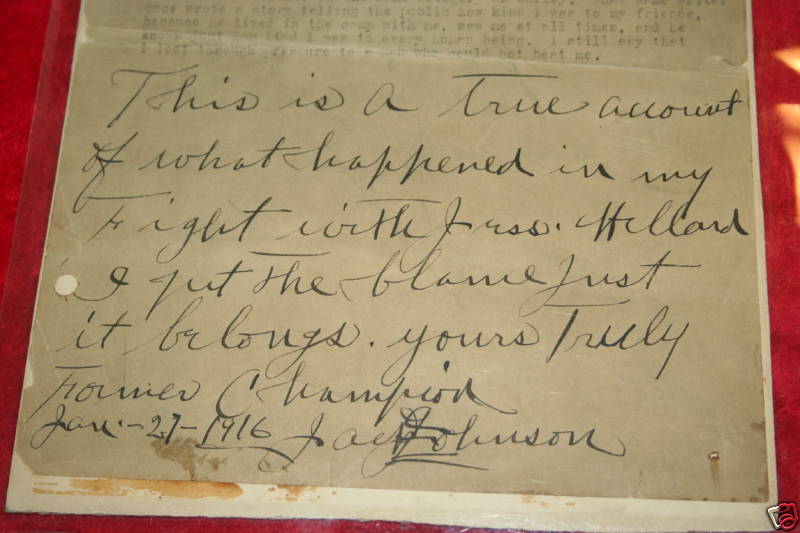 once wrote a story telling the public how kind I was to my friends,
because he lived in the camp with me, saw me at all times, and he
knows just how kind I was to every human being. I still say that
I lost through pressure to a man who could not beat me.
This is a true account
of what happened in my
Fight with Jess. Willard
I put the blame Just
it belongs. yours Truly
Former Champion
Jan.-27-1916 Jack Johnson